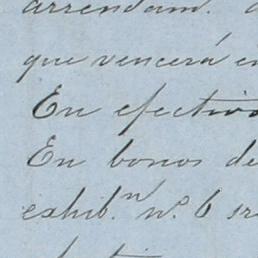 arrendam.
que vencerá en
En efectivo
En bonos de
exhib.n n.o 6 sr